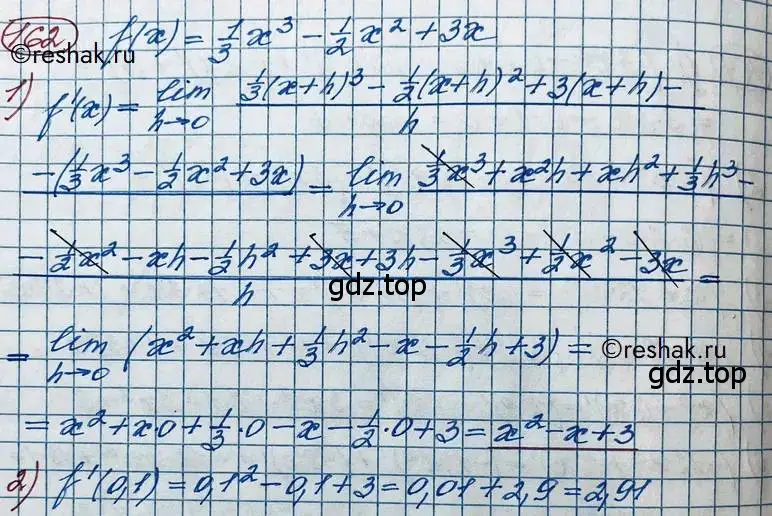 162 f(x) = 1/3 x³ - 1/2 x² + 3x
©reshak.ru
1) f'(x) = lim h→0 1/3(x+h)³ - 1/2(x+h)² + 3(x+h) - / h
-(1/3 x³ - 1/2 x² + 3x) = lim h→0 1/3 x³ + x²h + xh² + 1/3 h³ -
- 1/2 x² - xh - 1/2 h² + 3x + 3h - 1/3 x³ + 1/2 x² - 3x / h =
gdz.top
= lim h→0 (x² + xh + 1/3 h² - x - 1/2 h + 3) =
©reshak.ru
gdz.top
= x² + x·0 + 1/3·0 - x - 1/2·0 + 3 = x² - x + 3
2) f'(0,1) = 0,1² - 0,1 + 3 = 0,01 + 2,9 = 2,91